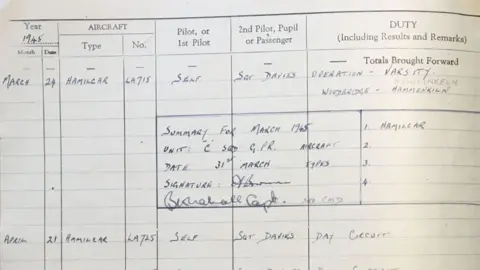 Year AIRCRAFT Pilot, or 2nd Pilot, Pupil DUTY
1945 1st Pilot or Passenger (Including Results and Remarks)
Month Date Type No.
— — — — — — — Totals Brought Forward
MARCH 24 HAMILCAR LA715 SELF SGT DAVIES OPERATION - VARSITY
WOODBRIDGE - HAMMENKILN
SUMMARY FOR MARCH 1945 1. HAMILCAR
UNIT: C SQD G.P.R. AIRCRAFT 2.
DATE 31ST MARCH TYPES 3.
SIGNATURE: 4.
Capt.
APRIL 21 HAMILCAR LA725 SELF SGT DAVIES DAY CIRCUIT